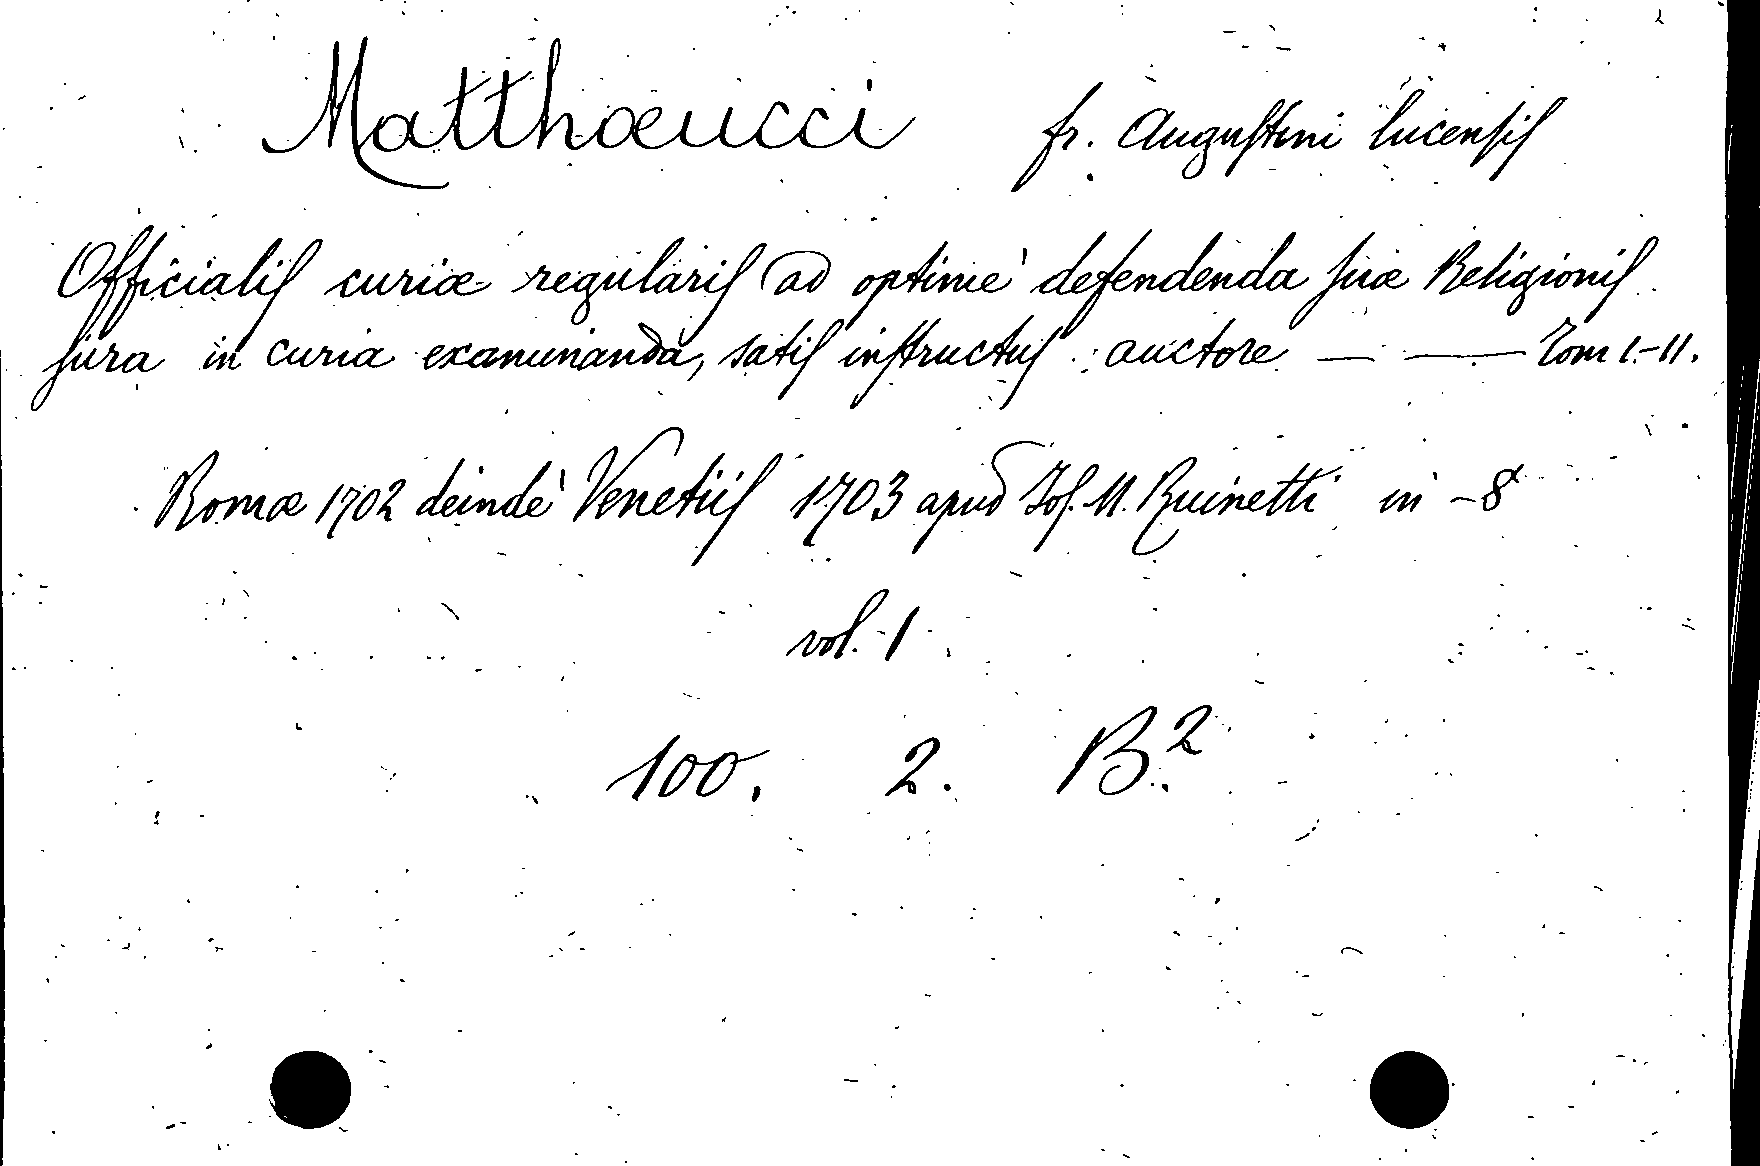 Matthæucci fr. Auguſtini lucenſiſ
Officialiſ curiæ regulariſ ad optimè defendenda ſuæ Religioniſ
jura in curia examinanda, satiſ inſtructuſ auctore — — Tom I.-II.
Romæ 1702 deindè Venetiiſ 1703 apud Joſ. M. Ruinetti in -8°
vol. 1
100. 2. B.²